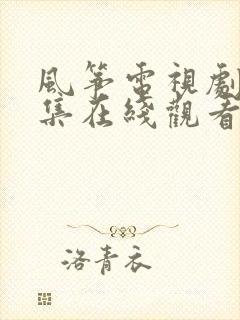 風筝電視劇
集在綫觀看
洛青衣